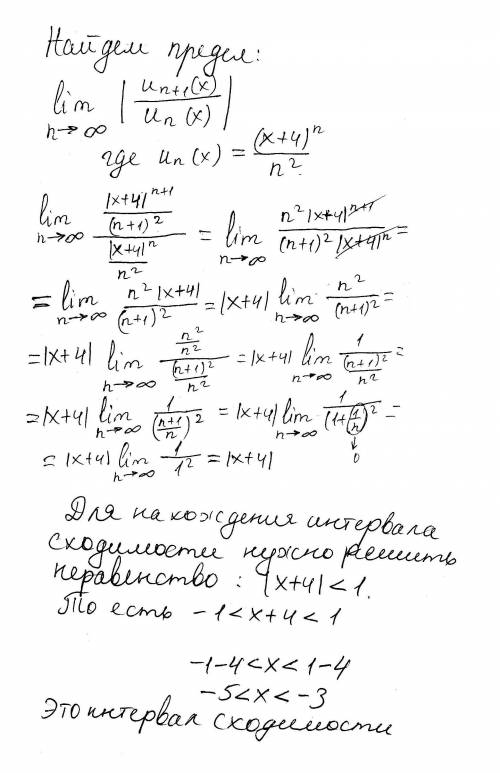 Найдем предел:
lim n→∞ |u_{n+1}(x) / u_n(x)|
где u_n(x) = (x+4)^n / n^2
lim n→∞ (|x+4|^{n+1} / (n+1)^2) / (|x+4|^n / n^2) = lim n→∞ n^2 |x+4|^{n+1} / (n+1)^2 |x+4|^n =
= lim n→∞ n^2 |x+4| / (n+1)^2 = |x+4| lim n→∞ n^2 / (n+1)^2 =
= |x+4| lim n→∞ (n^2 / n^2) / ((n+1)^2 / n^2) = |x+4| lim n→∞ 1 / ((n+1)^2 / n^2) =
= |x+4| lim n→∞ 1 / ((n+1)/n)^2 = |x+4| lim n→∞ 1 / (1 + (1/n))^2 =
↓ 0
= |x+4| lim n→∞ 1 / 1^2 = |x+4|
Для нахождения интервала
сходимости нужно решить
неравенство: |x+4| < 1.
То есть -1 < x+4 < 1
-1-4 < x < 1-4
-5 < x < -3
Это интервал сходимости